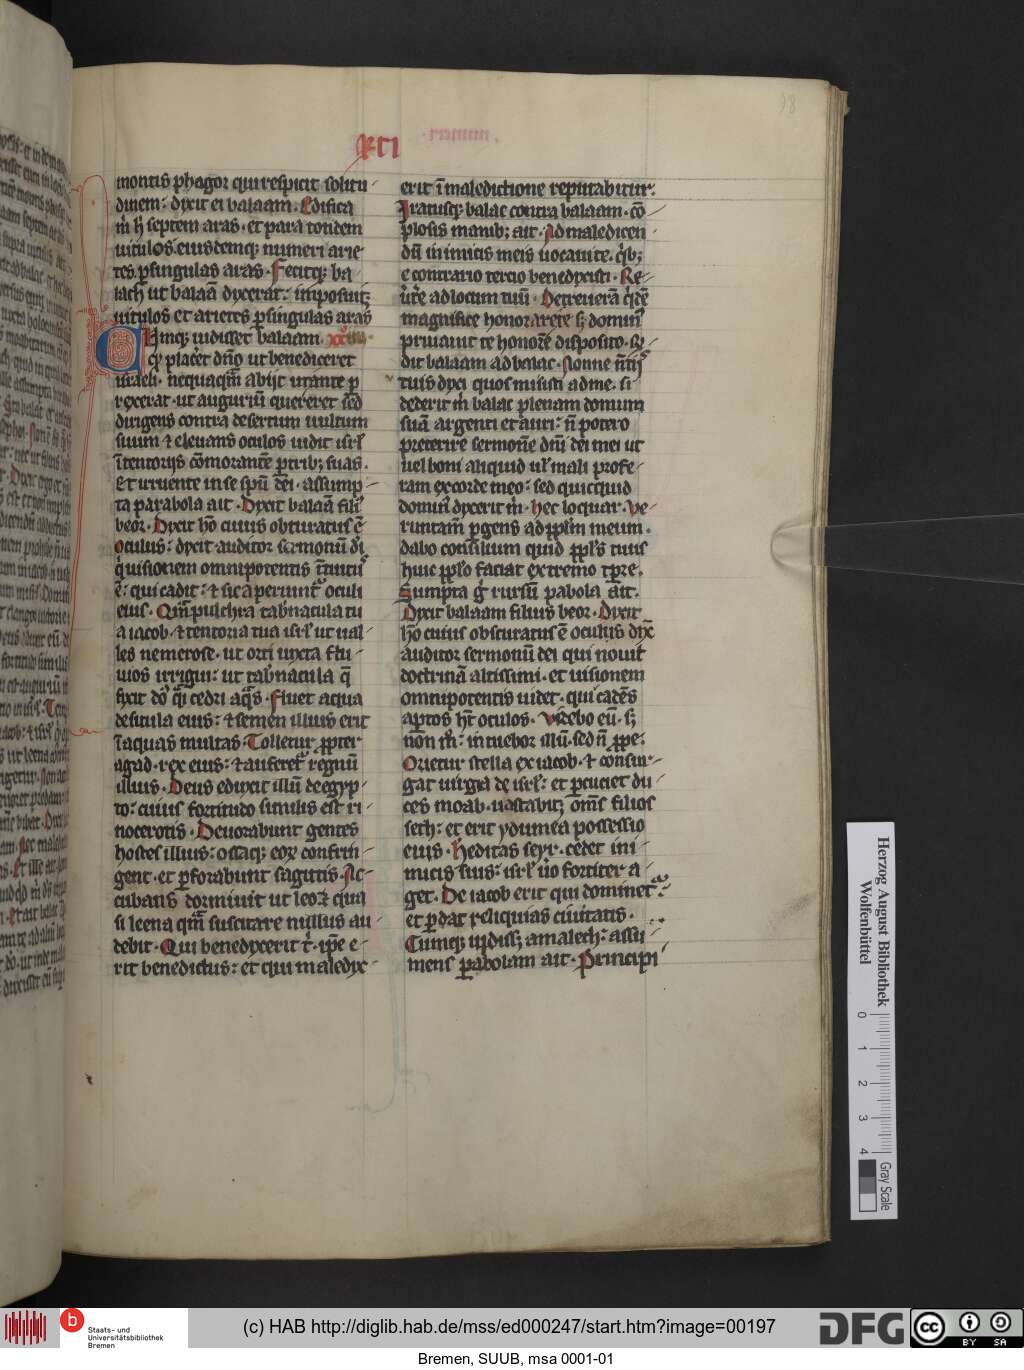 RTI
montis phogor qui respicit solitu
dinem: dixit ei balaam. Edifica
m̄ h̄ septem aras. et para totidem
uitulos. eiusdemqꝫ numeri arie
tes ꝑ singulas aras. Fecitqꝫ ba
lach ut balaā dyxerat: imposuitqꝫ
uitulos et arietes ꝑ singulas aras
Cumqꝫ uidisset balaam.
qꝫ placet dn̄o ut benediceret
israeli. nequaqm̄ abijt ut ante ꝑ
rexerat. ut auguriū quereret. sed
dirigens contra desertum uultum
suum ⁊ eleuans oculos uidit isrl̄
ī tentorijs cōmorantē ꝑ tribꝫ suas.
Et irruente in se spū dei. assump
ta parabola ait. Dyxit balaā fili
beor. Dyxit hō cuius obturatus ē
oculus: dyxit auditor sermonū di
q uisionem omnipotentis ītuitꝰ
ē: qui cadit: ⁊ sic aperiuntꝰ oculi
eius. Qm̄ pulchra tabnacula tu
a iacob. ⁊ tentoria tua isrl̄ ut ual
les nemorose. ut orti iuxta flu
uios irrigui: ut tabnacula q̄
fixit dō qͥ cedri aqͣs. Fluet aqua
de situla eius: ⁊ semen illius erit
ī aquas multas. Tolletur ꝓpter
agad. rex eius: ⁊ auferetꝰ regnū
illius. Deus eduxit illū de egyp
to: cuius fortitudo similis est ri
nocerotis. Deuorabunt gentes
hostes illius: ossaqꝫ eoꝝ confrin
gent. et ꝑforabunt sagittis. Ac
cubans dormiuit ut leo ⁊ qua
si leena qm̄ suscitare nullus au
debit. Qui benedyxerit t̄. ipē e
rit benedictus: et qui maledyx
erit ī maledictione reputabitur.
Iratusqꝫ balac contra balaam. cō
plosis manibꝫ ait. Ad maledicen
dū inimicis meis uocaui te. qͥbꝫ
e contrario tercio benedyxisti. Re
ūte ad locum tuū. Decreuerā qͥdē
magnifice honorare te sꝫ dominꝰ
priuauit te honore disposito. Rn̄
dit balaam ad balac. Nonne nūtijs
tuis dyxi quos misisti ad me. si
dederit m̄ balac plenam domum
suā argenti et auri: n̄ potero
preterire sermonē dn̄i dei mei ut
uel boni aliquid ul̄ mali profe
ram ex corde meo: sed quicquid
dominꝰ dyxerit m̄. hec loquar. Ve
runtam̄ pgens ad ppl̄m meum.
dabo consilium quid ppl̄s tuus
huic pplo faciat extremo tꝑre.
Sumpta g̊ rursū pabola ait.
Dyxit balaam filius beor. Dyxit
hō cuius obscuratus ē oculus dix̄
auditor sermonū dei qui nouit
doctrinā altissimi. et uisionem
omnipotentis uidet. qui cadēs
aptos ht̄ oculos. Videbo eū. sꝫ
non m̊: intuebor illū. sed n̄ ꝓpe.
Orietur stella ex iacob. ⁊ consur
gat uirga de isrl̄: et pcuciet du
ces moab. uastabitqꝫ om̄s filios
seth: et erit ydumea possessio
eius. Heditas seyr. cedet ini
micis suis: isrl̄ ūo fortiter a
get. De iacob erit qui dominetꝰ
et pdat reliquias ciuitatis.
Cumqꝫ uidissꝫ amalech: assu
mens pabolam ait. Principi
Herzog August Bibliothek
Wolfenbüttel
0 1 2 3 4
Gray Scale
b
Staats- und
Universitätsbibliothek
Bremen
(c) HAB http://diglib.hab.de/mss/ed000247/start.htm?image=00197
DFG
cc
BY SA
Bremen, SUUB, msa 0001-01